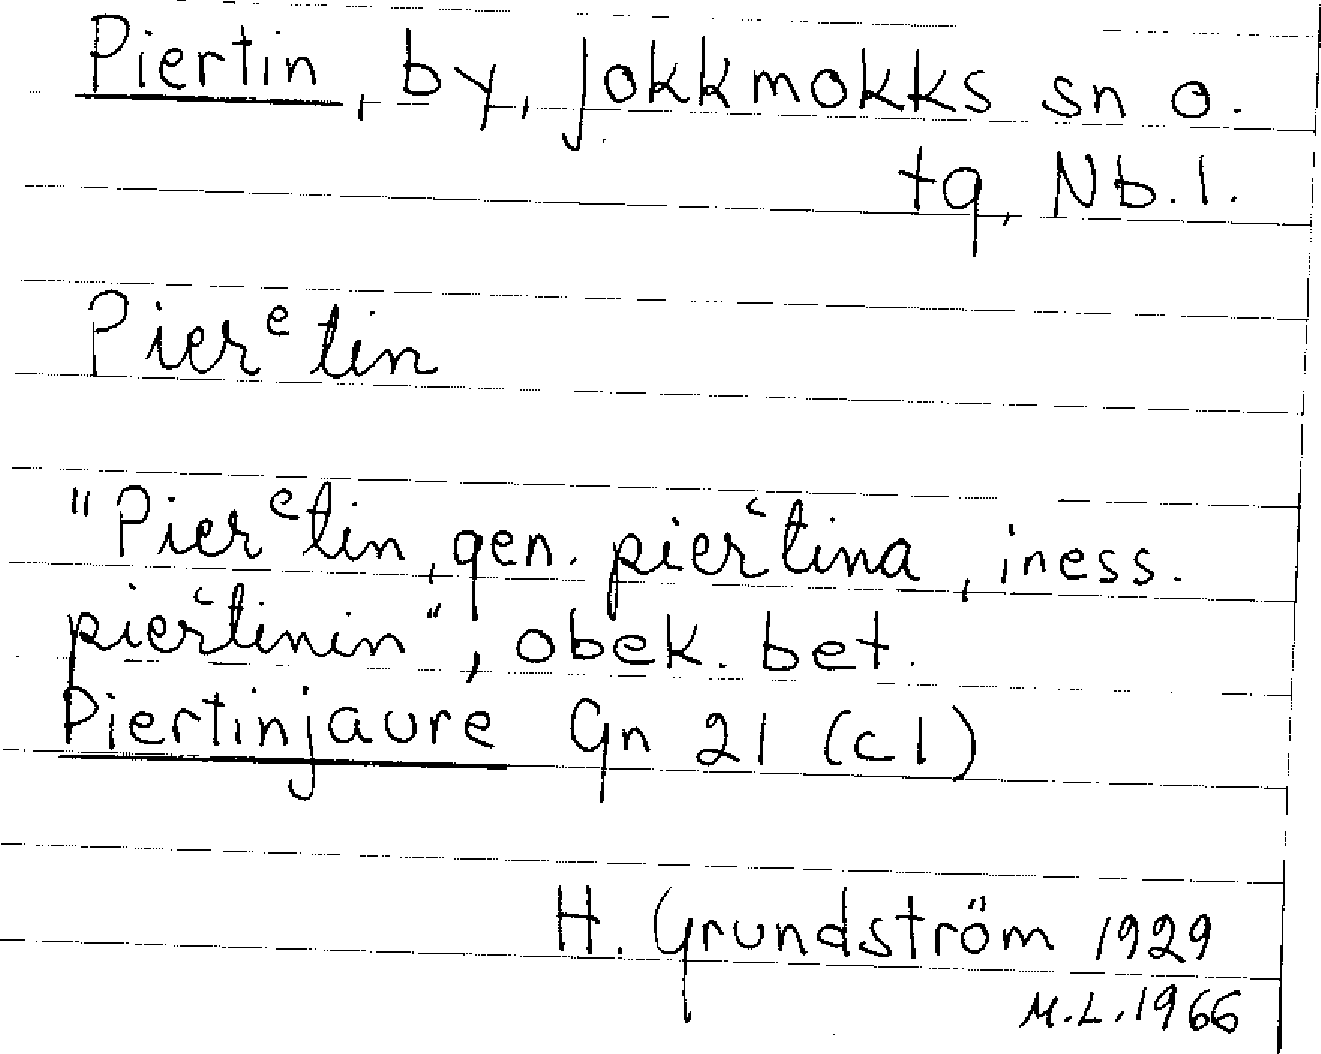 Piertin, by, Jokkmokks sn o.
tg, Nb. l.
Pierᵉtin
"Pierᵉtin, gen. pierʿtina, iness.
pierʿtinin", obek. bet.
Piertinjaure Gn 21 (c1)
H. Grundström 1929
M.L. 1966